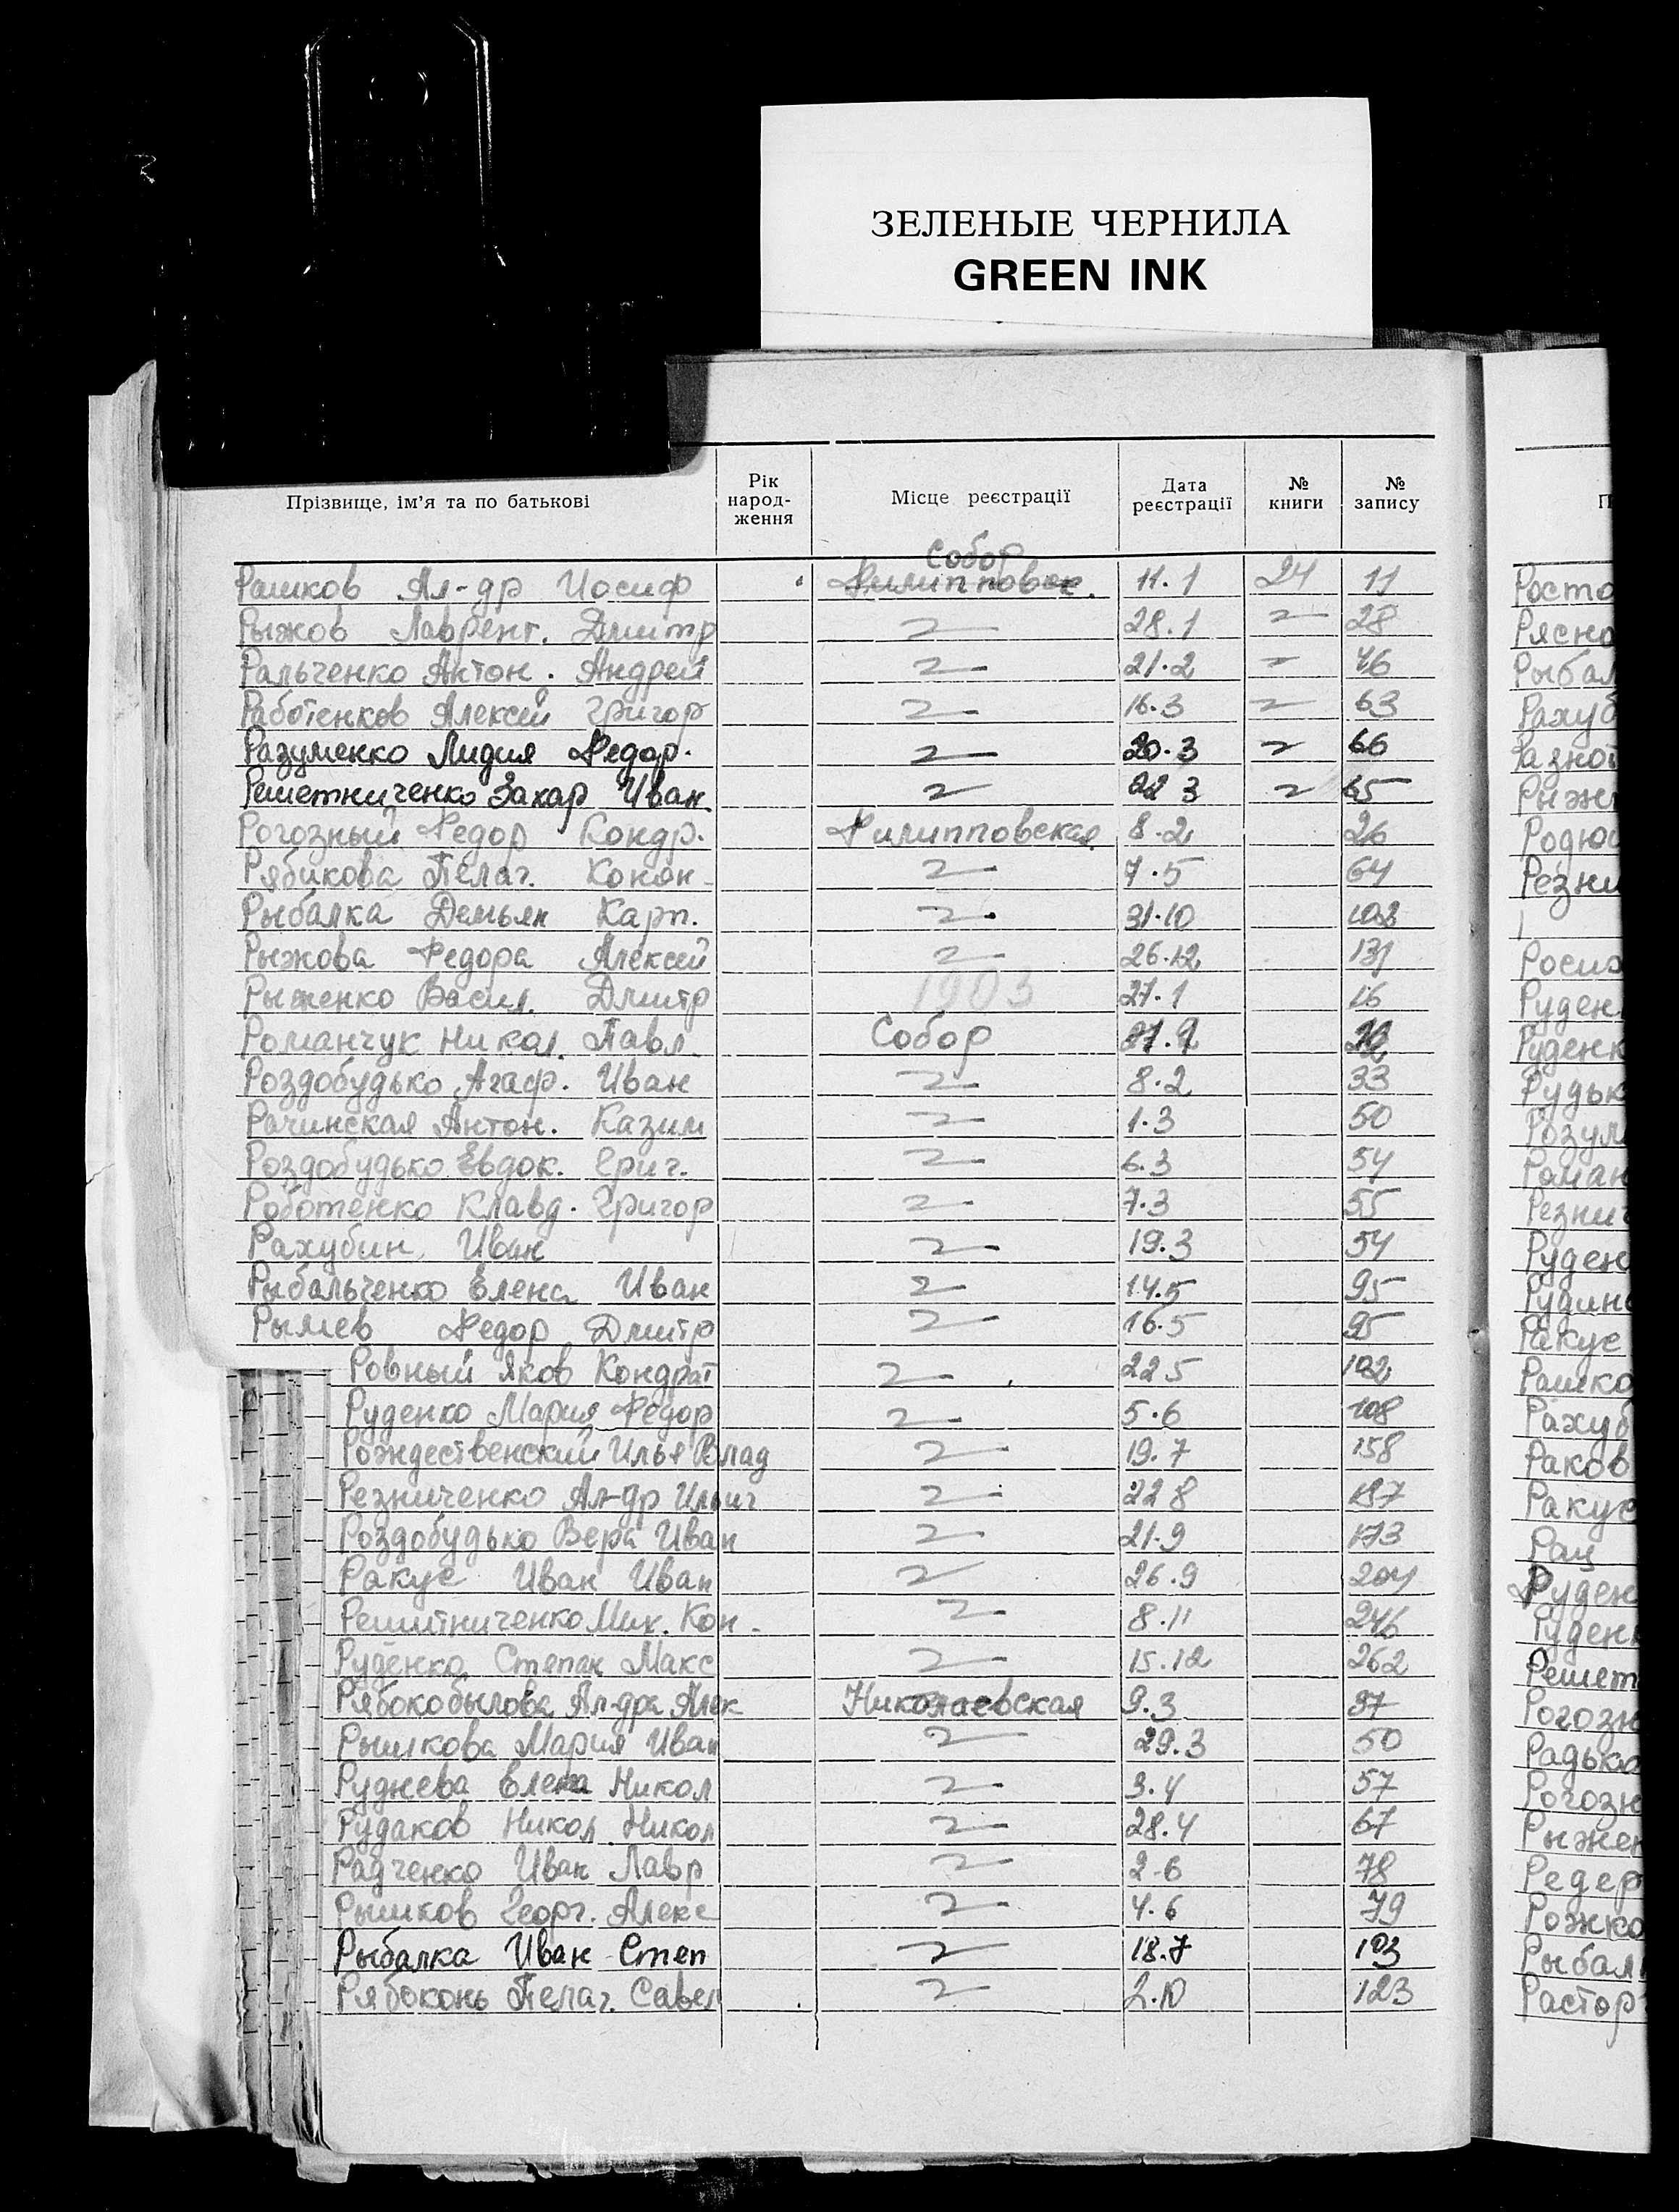 ЗЕЛЕНЫЕ ЧЕРНИЛА
GREEN INK
Прізвище, ім'я та по батькові Рік народ-ження Місце реєстрації Дата реєстрації № книги № запису
Собор
Рашков Ал-др Иосиф Филипповск. 11.1 24 11
Рыжов Лаврент. Дмитр 〃 28.1 〃 28
Ральченко Антон. Андрей 〃 21.2 〃 46
Работенков Алексей Григор 〃 16.3 〃 63
Разуменко Лидия Федор. 〃 20.3 〃 66
Решетниченко Захар Иван. 〃 22 3 〃 65
Рогозный Федор Кондр. Филипповская 8.2 26
Рябикова Пелаг. Конон- 〃 7.5 64
Рыбалка Демьян Карп. 〃 31.10 102
Рыжова Федора Алексей 〃 26.12 131
Рыженко Васил. Дмитр 1903 27.1 16
Романчук Никол. Павл. Собор
Роздобудько Агаф. Иван 〃 8.2 33
Рачинская Антон. Казим 〃 1.3 50
Роздобудько Евдок. Григ. 〃 6.3 54
Роботенко Клавд. Григор 〃 7.3 55
Рахубин Иван 〃 19.3 54
Рыбальченко Елена Иван 〃 14.5 95
Рымев Федор Дмитр 〃 16.5 95
Ровный Яков Кондрат 〃 22 5 102
Руденко Мария Федор 〃 5.6 108
Рождественский Илья Влад 〃 19.7 158
Резниченко Ал-др Ильич 〃 22 8 187
Роздобудько Вера Иван 〃 21.9 173
Ракус Иван Иван 〃 26.9 204
Решитниченко Мих. Кон. 〃 8.11 246
Руденко Степан Макс 〃 15.12 262
Рябокобылова Ал-дра Алек Николаевская 9.3 37
Рышкова Мария Иван 〃 29.3 50
Руднева Елена Никол 〃 3.4 57
Рудаков Никол Никол 〃 28.4 67
Радченко Иван Лавр 〃 2.6 78
Рышков Георг. Алекс 〃 4.6 79
Рыбалка Иван Степ 〃 18.7 103
Рябоконь Пелаг. Савел 〃 2.10 123
П
Росто
Рясно
Рыбал
Рахуб
Разной
Рыжи
Родю
Резни
Росих
Руден
Руденк
Рудьк
Розум
Роман
Резнич
Руден
Рудин
Ракус
Рашко
Рахуб
Раков
Ракус
Рац
Руден
Руден
Решет
Рогозн
Радько
Рогозн
Рыжен
Редер
Рожко
Рыбал
Растор